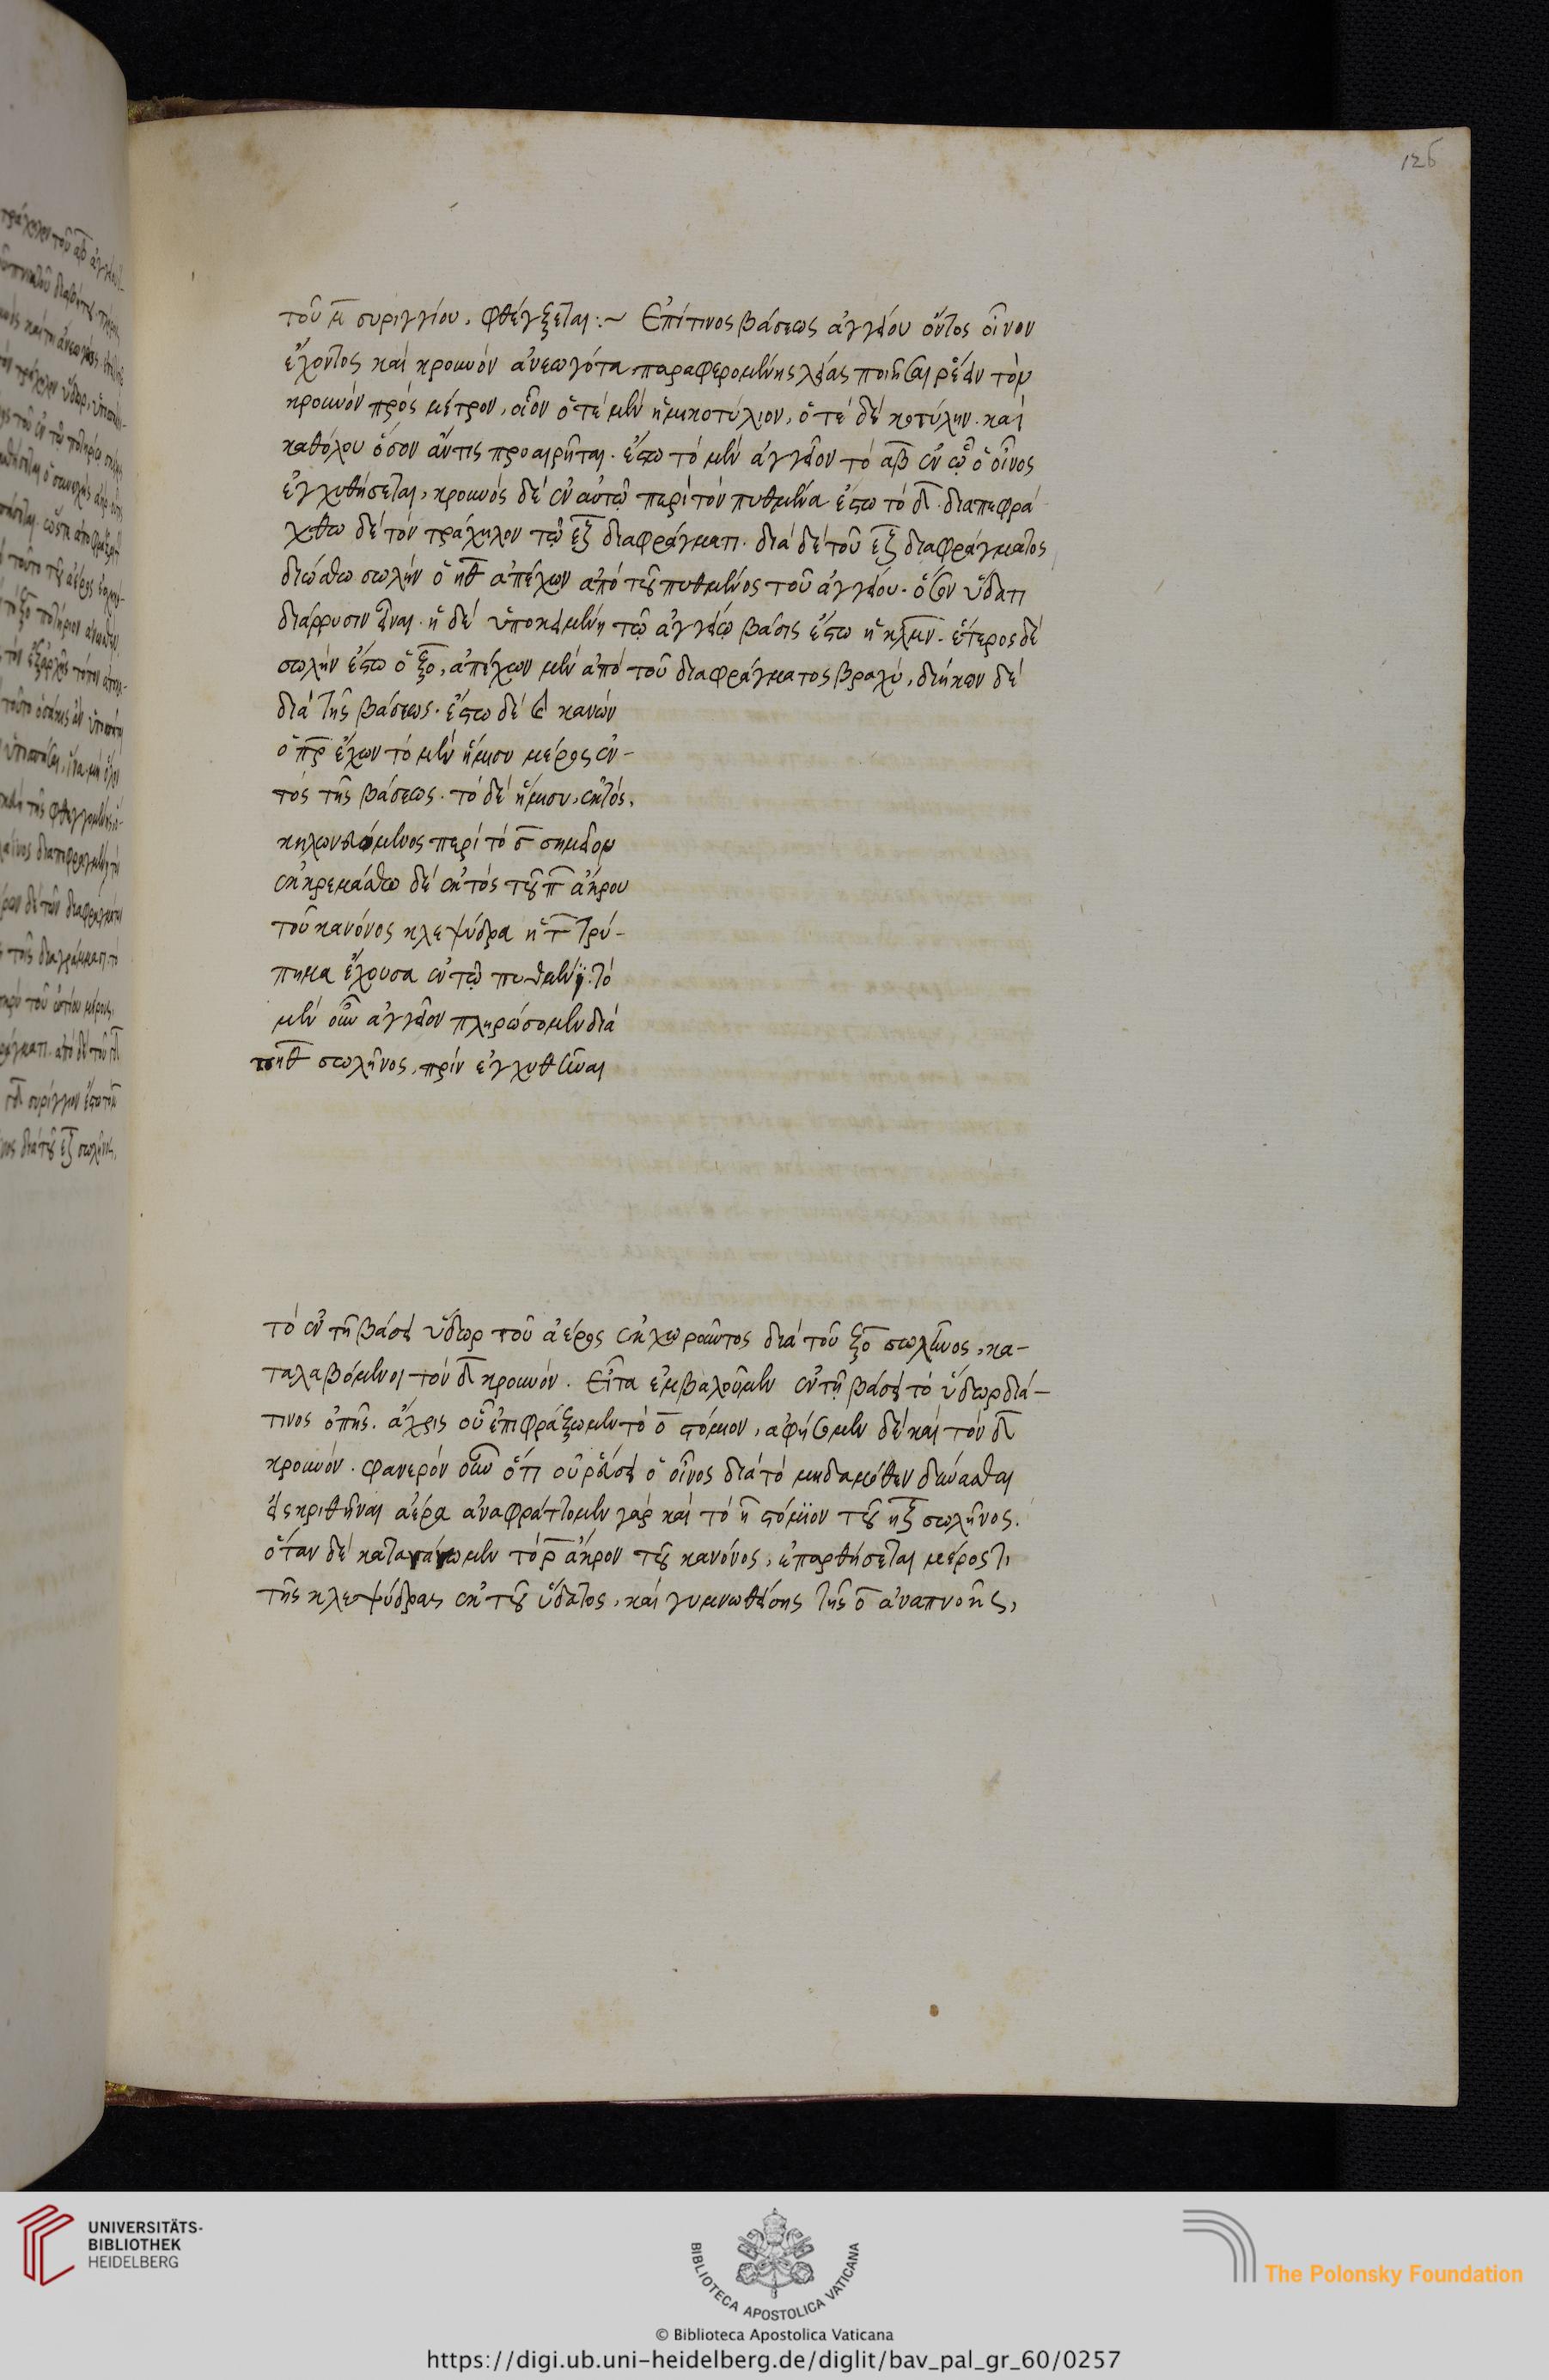 126
τοῦ μ̅ συριγγίου, φθέγξεται :~ Ἐπί τινος βάσεως ἀγγείου ὄντος οἶνον
ἔχοντος καὶ κρουνὸν ἀνεωγότα παραφερομένης λείας ποιῆσαι ῥέειν τὸν
κρουνὸν πρὸς μέτρον, οἷον ὁτὲ μὲν ἡμικοτύλιον, ὁτὲ δὲ κοτύλην. καὶ
καθόλου ὅσον ἄν τις προαιρῆται. ἔστω τὸ μὲν ἀγγεῖον τὸ α̅β̅ ἐν ᾧ ὁ οἶνος
ἐγχυθήσεται, κρουνὸς δὲ ἐν αὐτῷ περὶ τὸν πυθμένα ἔστω τὸ δ̅. διαπεφρά
χθω δὲ τὸν τράχηλον τῷ ε̅ξ̅ διαφράγματι. διὰ δὲ τοῦ ε̅ξ̅ διαφράγματος
διώσθω σωλὴν ὁ η̅θ̅ ἀπέχων ἀπὸ τοῦ πυθμένος τοῦ ἀγγείου. ὅσον ὕδατι
διάρρυσιν εἶναι. ἡ δὲ ὑποκειμένη τῷ ἀγγείῳ βάσις ἔστω ἡ κ̅λ̅μ̅ν̅. ἕτερος δὲ
σωλὴν ἔστω ὁ ξ̅ο̅, ἀπέχων μὲν ἀπὸ τοῦ διαφράγματος βραχύ, διήκων δὲ
διὰ τῆς βάσεως. ἔστω δὲ καὶ κανὼν
ὁ π̅ρ̅ ἔχων τὸ μὲν ἥμισυ μέρος ἐν-
τὸς τῆς βάσεως. τὸ δὲ ἥμισυ, ἐκτός,
κηλωνευόμενος περὶ τὸ σ̅ σημεῖον
ἐκκρεμάσθω δὲ ἐκτὸς τοῦ π̅ ἄκρου
τοῦ κανόνος κλεψύδρα ἡ τ̅ τρύ-
πημα ἔχουσα ἐν τῷ πυθμένι. τὸ
μὲν οὖν ἀγγεῖον πληρώσομεν διὰ
το η̅θ̅ σωλῆνος, πρὶν ἐγχυθῆναι
τὸ ἐν τῇ βάσει ὕδωρ τοῦ ἀέρος ἐκχωροῦντος διὰ τοῦ ξ̅ο̅ σωλῆνος, κα-
ταλαβόμενοι τὸν δ̅ κρουνόν. Εἶτα ἐμβαλοῦμεν ἐν τῇ βάσει τὸ ὕδωρ διά-
τινος ὀπῆς. ἄχρις οὗ ἐπιφράξωμεν τὸ ο̅ στόμιον, ἀφήσομεν δὲ καὶ τὸν δ̅
κρουνόν. φανερὸν οὖν ὅτι οὐ ῥεύσει ὁ οἶνος διὰ τὸ μηδαμόθεν δύνασθαι
εἰσκριθῆναι ἀέρα ἀναφράττομεν γὰρ καὶ τὸ η̅ στόμιον τοῦ η̅ξ̅ σωλῆνος.
ὅταν δὲ κατασπάσωμεν τὸ ρ̅ ἄκρον τοῦ κανόνος, ἐπαρθήσεται μέρος τι
τῆς κλεψύδρας ἐκ τοῦ ὕδατος, καὶ γυμνωθείσης τῆς ο̅ ἀναπνοῆς,
UNIVERSITÄTS-
BIBLIOTHEK
HEIDELBERG
BIBLIOTECA APOSTOLICA VATICANA
The Polonsky Foundation
© Biblioteca Apostolica Vaticana
https://digi.ub.uni-heidelberg.de/diglit/bav_pal_gr_60/0257